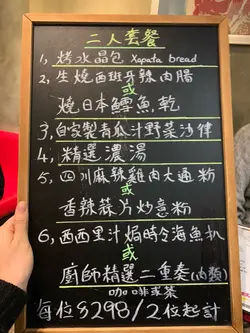 二人套餐
1, 烤水晶包 Xapata bread
2, 生燒西班牙辣肉腸
或
燒日本鱈魚乾
3, 自家製青瓜汁野菜沙律
4, 精選濃湯
5, 四川麻辣雞肉大通粉
或
香辣蒜片炒意粉
6, 西西里汁焗時令海魚扒
或
廚師精選二重奏(肉類)
咖啡或茶
每位$298/2位起計